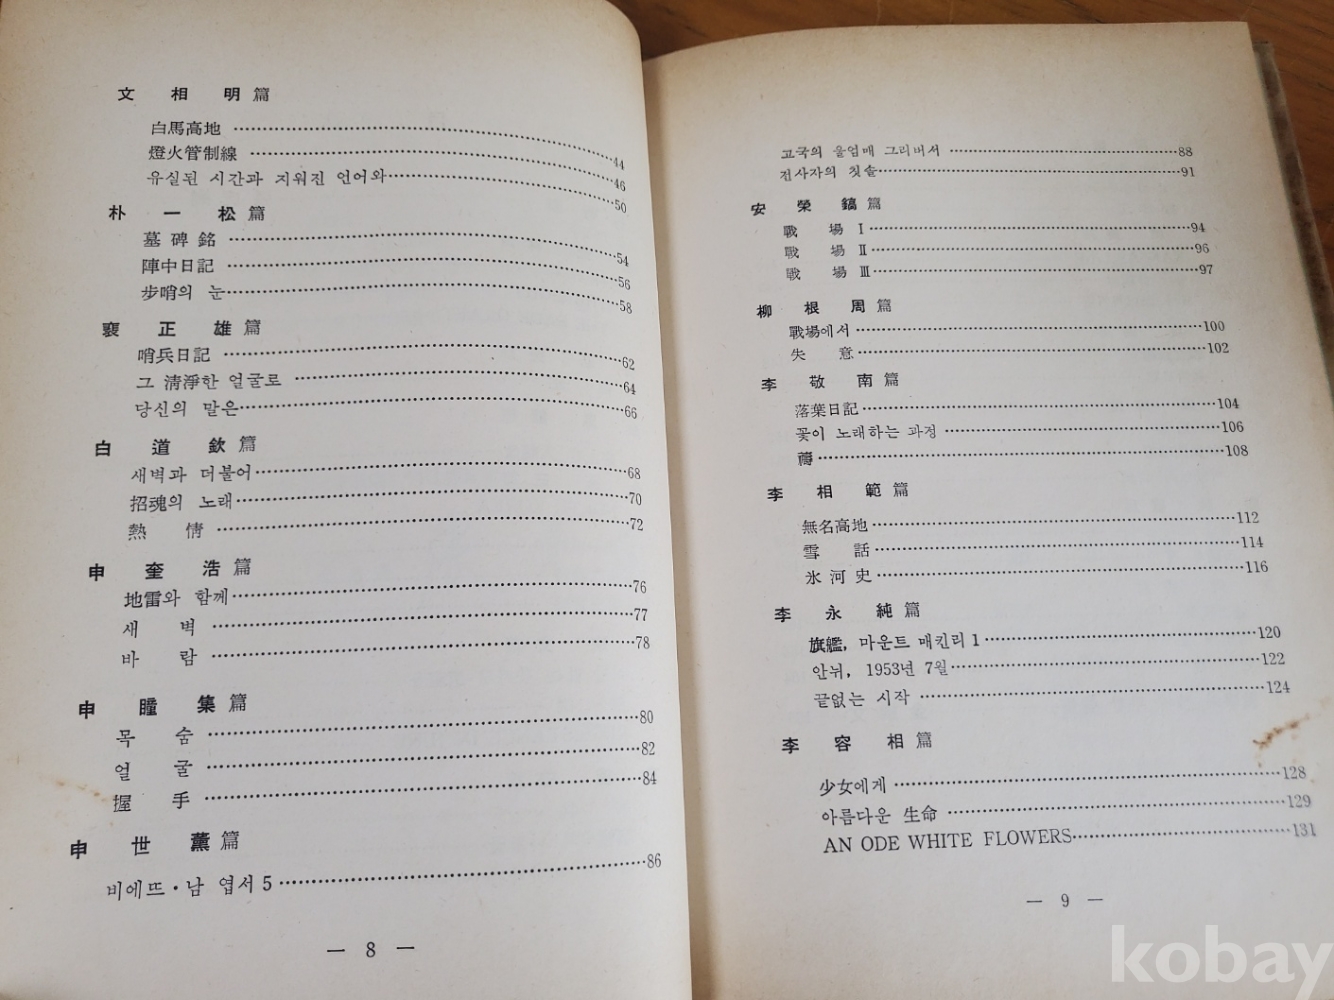 文相明篇
白馬高地 44
燈火管制線 46
유실된 시간과 지워진 언어와 50
朴一松篇
墓碑銘 54
陣中日記 56
步哨의 눈 58
裵正雄篇
哨兵日記 62
그 淸淨한 얼굴로 64
당신의 말은 66
白道欽篇
새벽과 더불어 68
招魂의 노래 70
熱情 72
申奎浩篇
地雷와 함께 76
새벽 77
바람 78
申瞳集篇
목숨 80
얼굴 82
握手 84
申世薰篇
비에뜨·남 엽서 5 86
— 8 —
고국의 울엄매 그리버서 88
전사자의 칫솔 91
安榮鎬篇
戰場 Ⅰ 94
戰場 Ⅱ 96
戰場 Ⅲ 97
柳根周篇
戰場에서 100
失意 102
李敬南篇
落葉日記 104
꽃이 노래하는 과정 106
108
李相範篇
無名高地 112
雪話 114
氷河史 116
李永純篇
旗艦, 마운트 매킨리 1 120
안뉘, 1953년 7월 122
끝없는 시작 124
李容相篇
少女에게 128
아름다운 生命 129
AN ODE WHITE FLOWERS 131
— 9 —
kobay